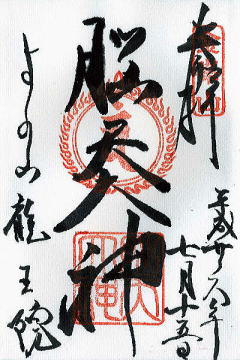 奉拝
平成廿年
七月十五日
脳天大神
よしの山 龍王院